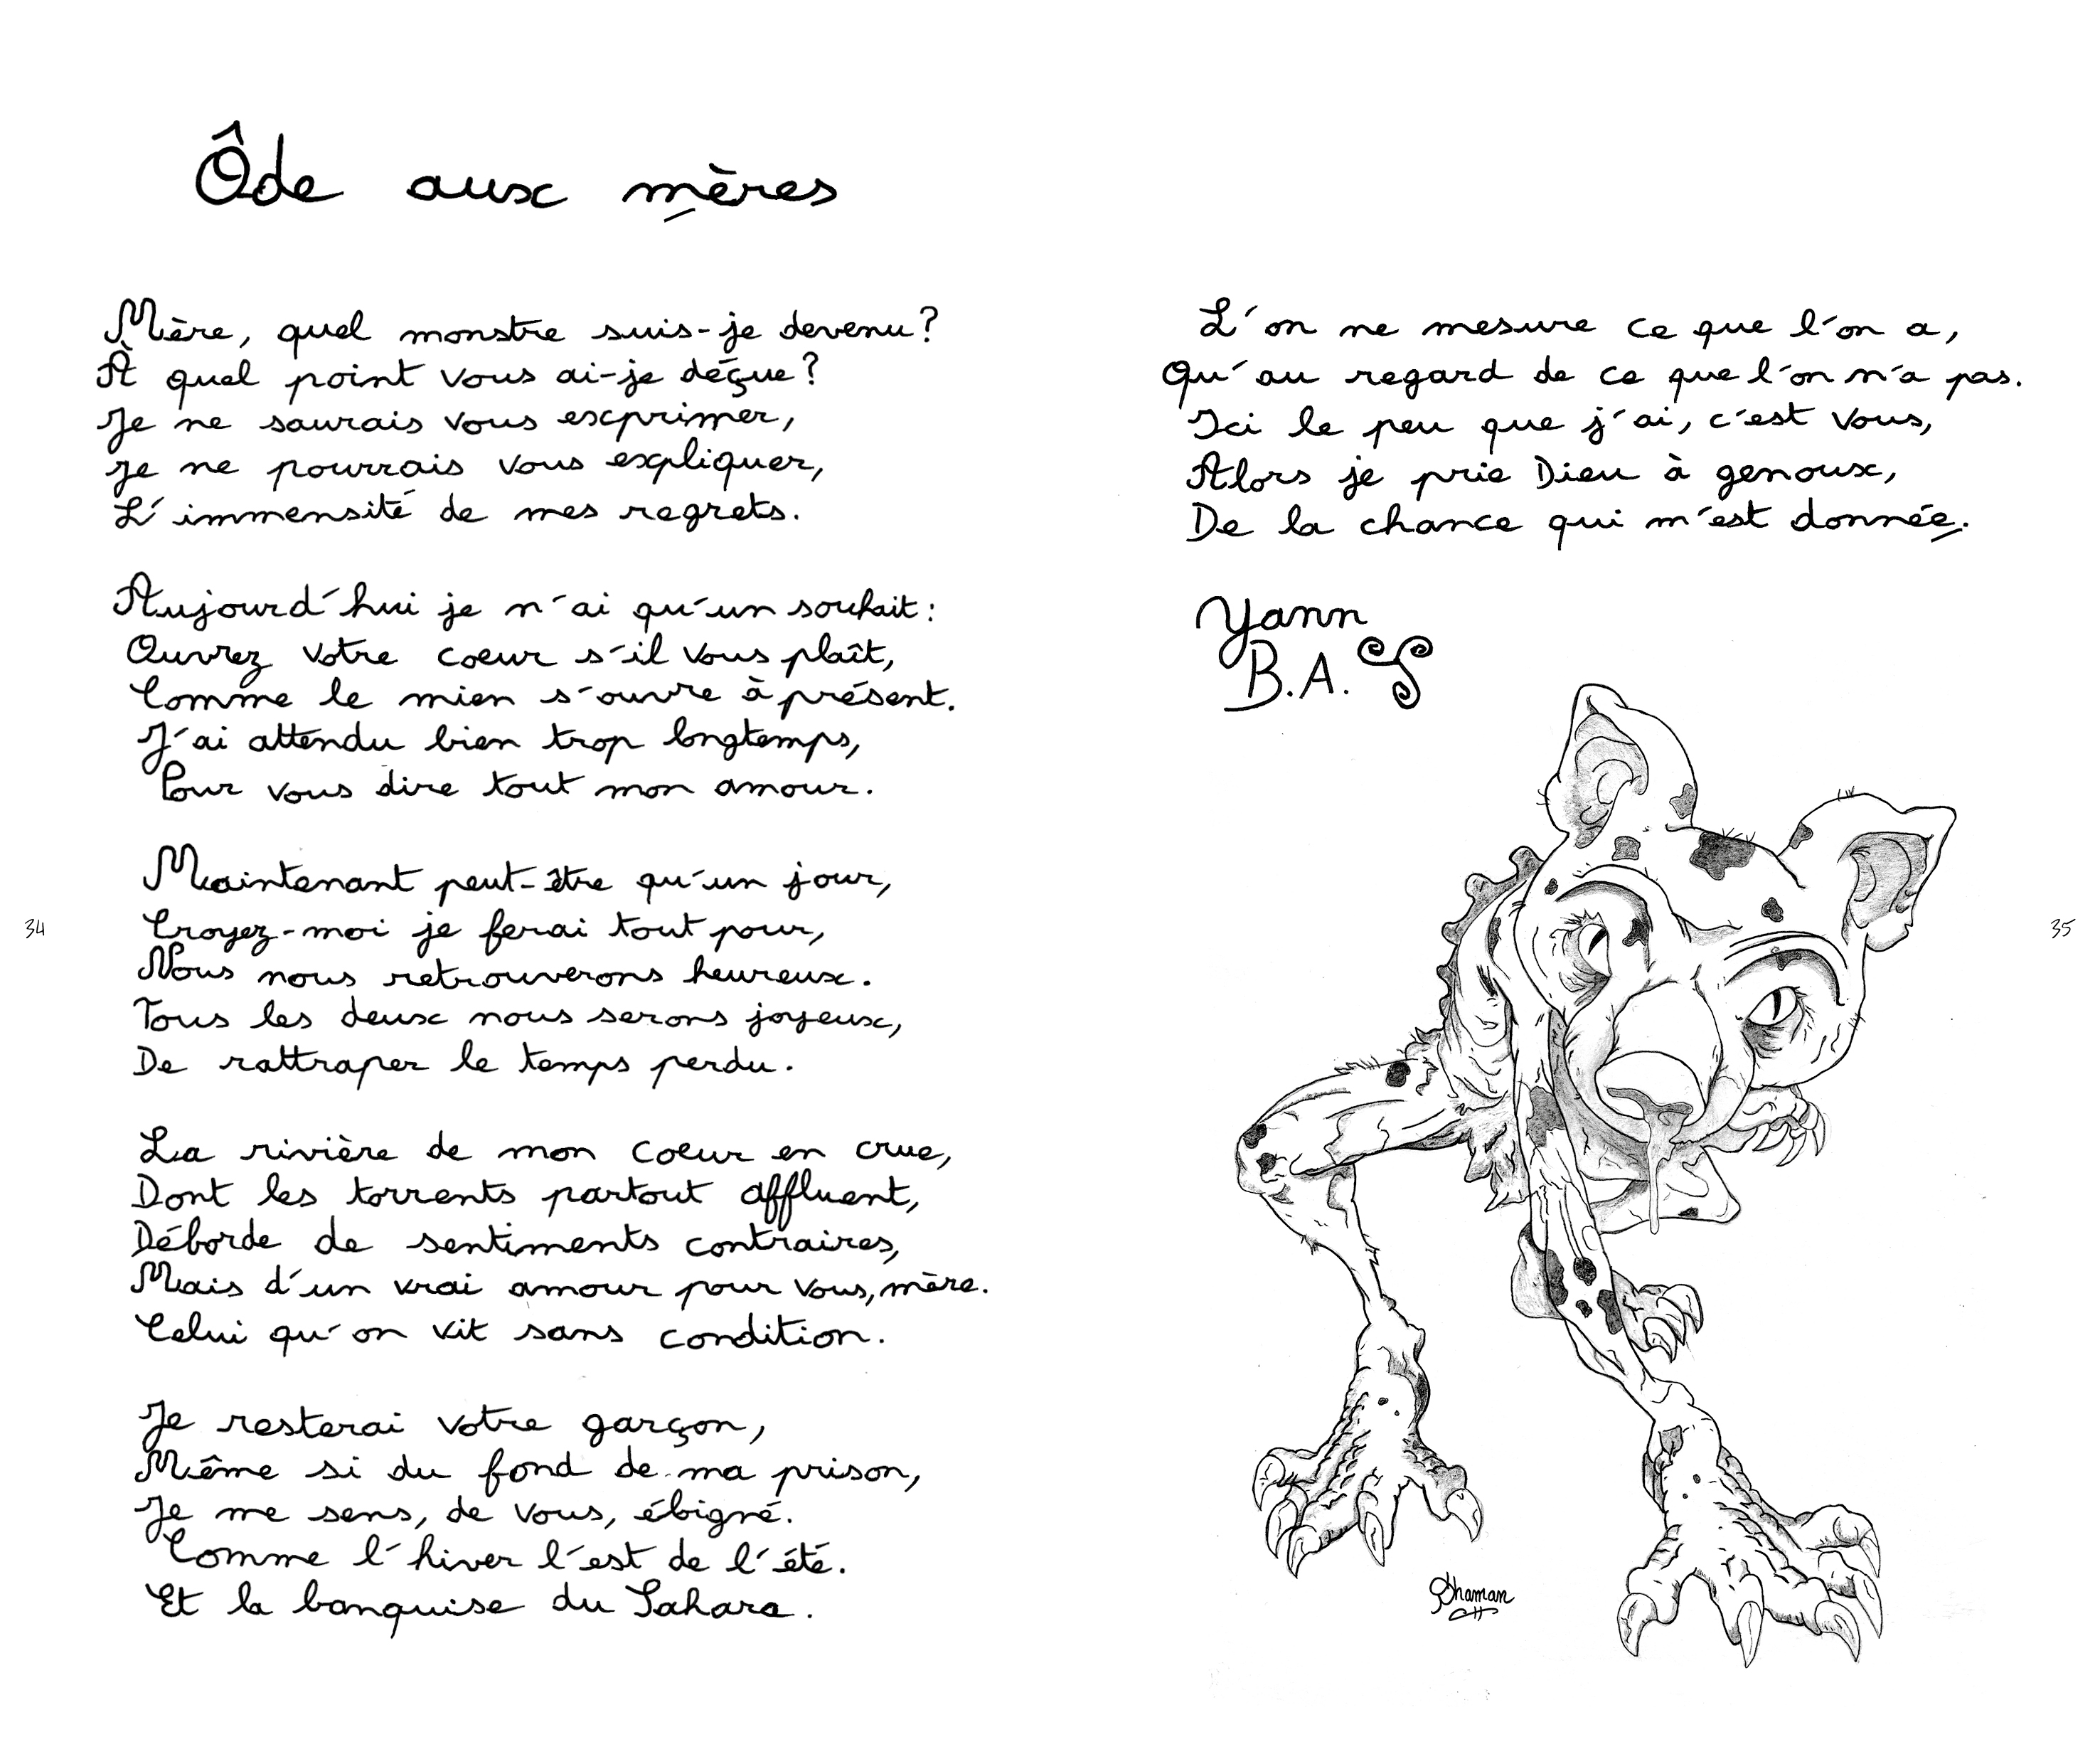 Ôde aux mères
Mère, quel monstre suis-je devenu?
À quel point vous ai-je déçue?
Je ne saurais vous exprimer,
Je ne pourrais vous expliquer,
L'immensité de mes regrets.
Aujourd'hui je n'ai qu'un souhait:
Ouvrez votre coeur s'il vous plaît,
Comme le mien s'ouvre à présent.
J'ai attendu bien trop longtemps,
Pour vous dire tout mon amour.
Maintenant peut-être qu'un jour,
Croyez-moi je ferai tout pour,
Nous nous retrouverons heureux.
Tous les deux nous serons joyeux,
De rattraper le temps perdu.
La rivière de mon coeur en crue,
Dont les torrents partout affluent,
Déborde de sentiments contraires,
Mais d'un vrai amour pour vous, mère.
Celui qu'on vit sans condition.
Je resterai votre garçon,
Même si du fond de ma prison,
Je me sens, de vous, ébigné.
Comme l'hiver l'est de l'été.
Et la banquise du Sahara.
34
L'on ne mesure ce que l'on a,
Qu'au regard de ce que l'on n'a pas.
Ici le peu que j'ai, c'est vous,
Alors je prie Dieu à genoux,
De la chance qui m'est donnée.
Yann
B.A.
35
Shaman